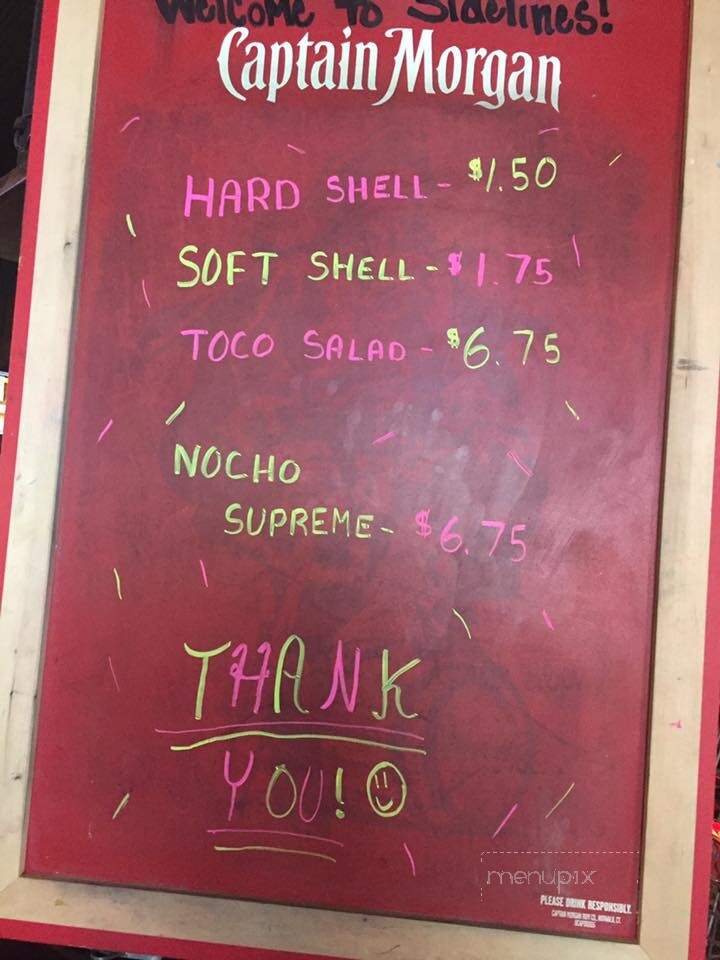 Welcome To Sidelines!
Captain Morgan
HARD SHELL - $1.50
SOFT SHELL - $1.75
TOCO SALAD - $6.75
NOCHO
SUPREME - $6.75
THANK
YOU!
menupix
PLEASE DRINK RESPONSIBLY.